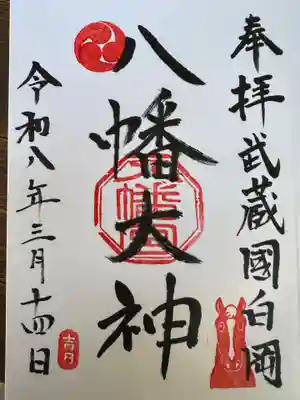 奉拝武蔵國白岡
八幡大神
令和八年三月十四日